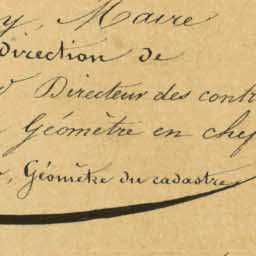 y, Maire
Direction de
Directeur des contr
Géomètre en chef
, Géomètre du cadastre